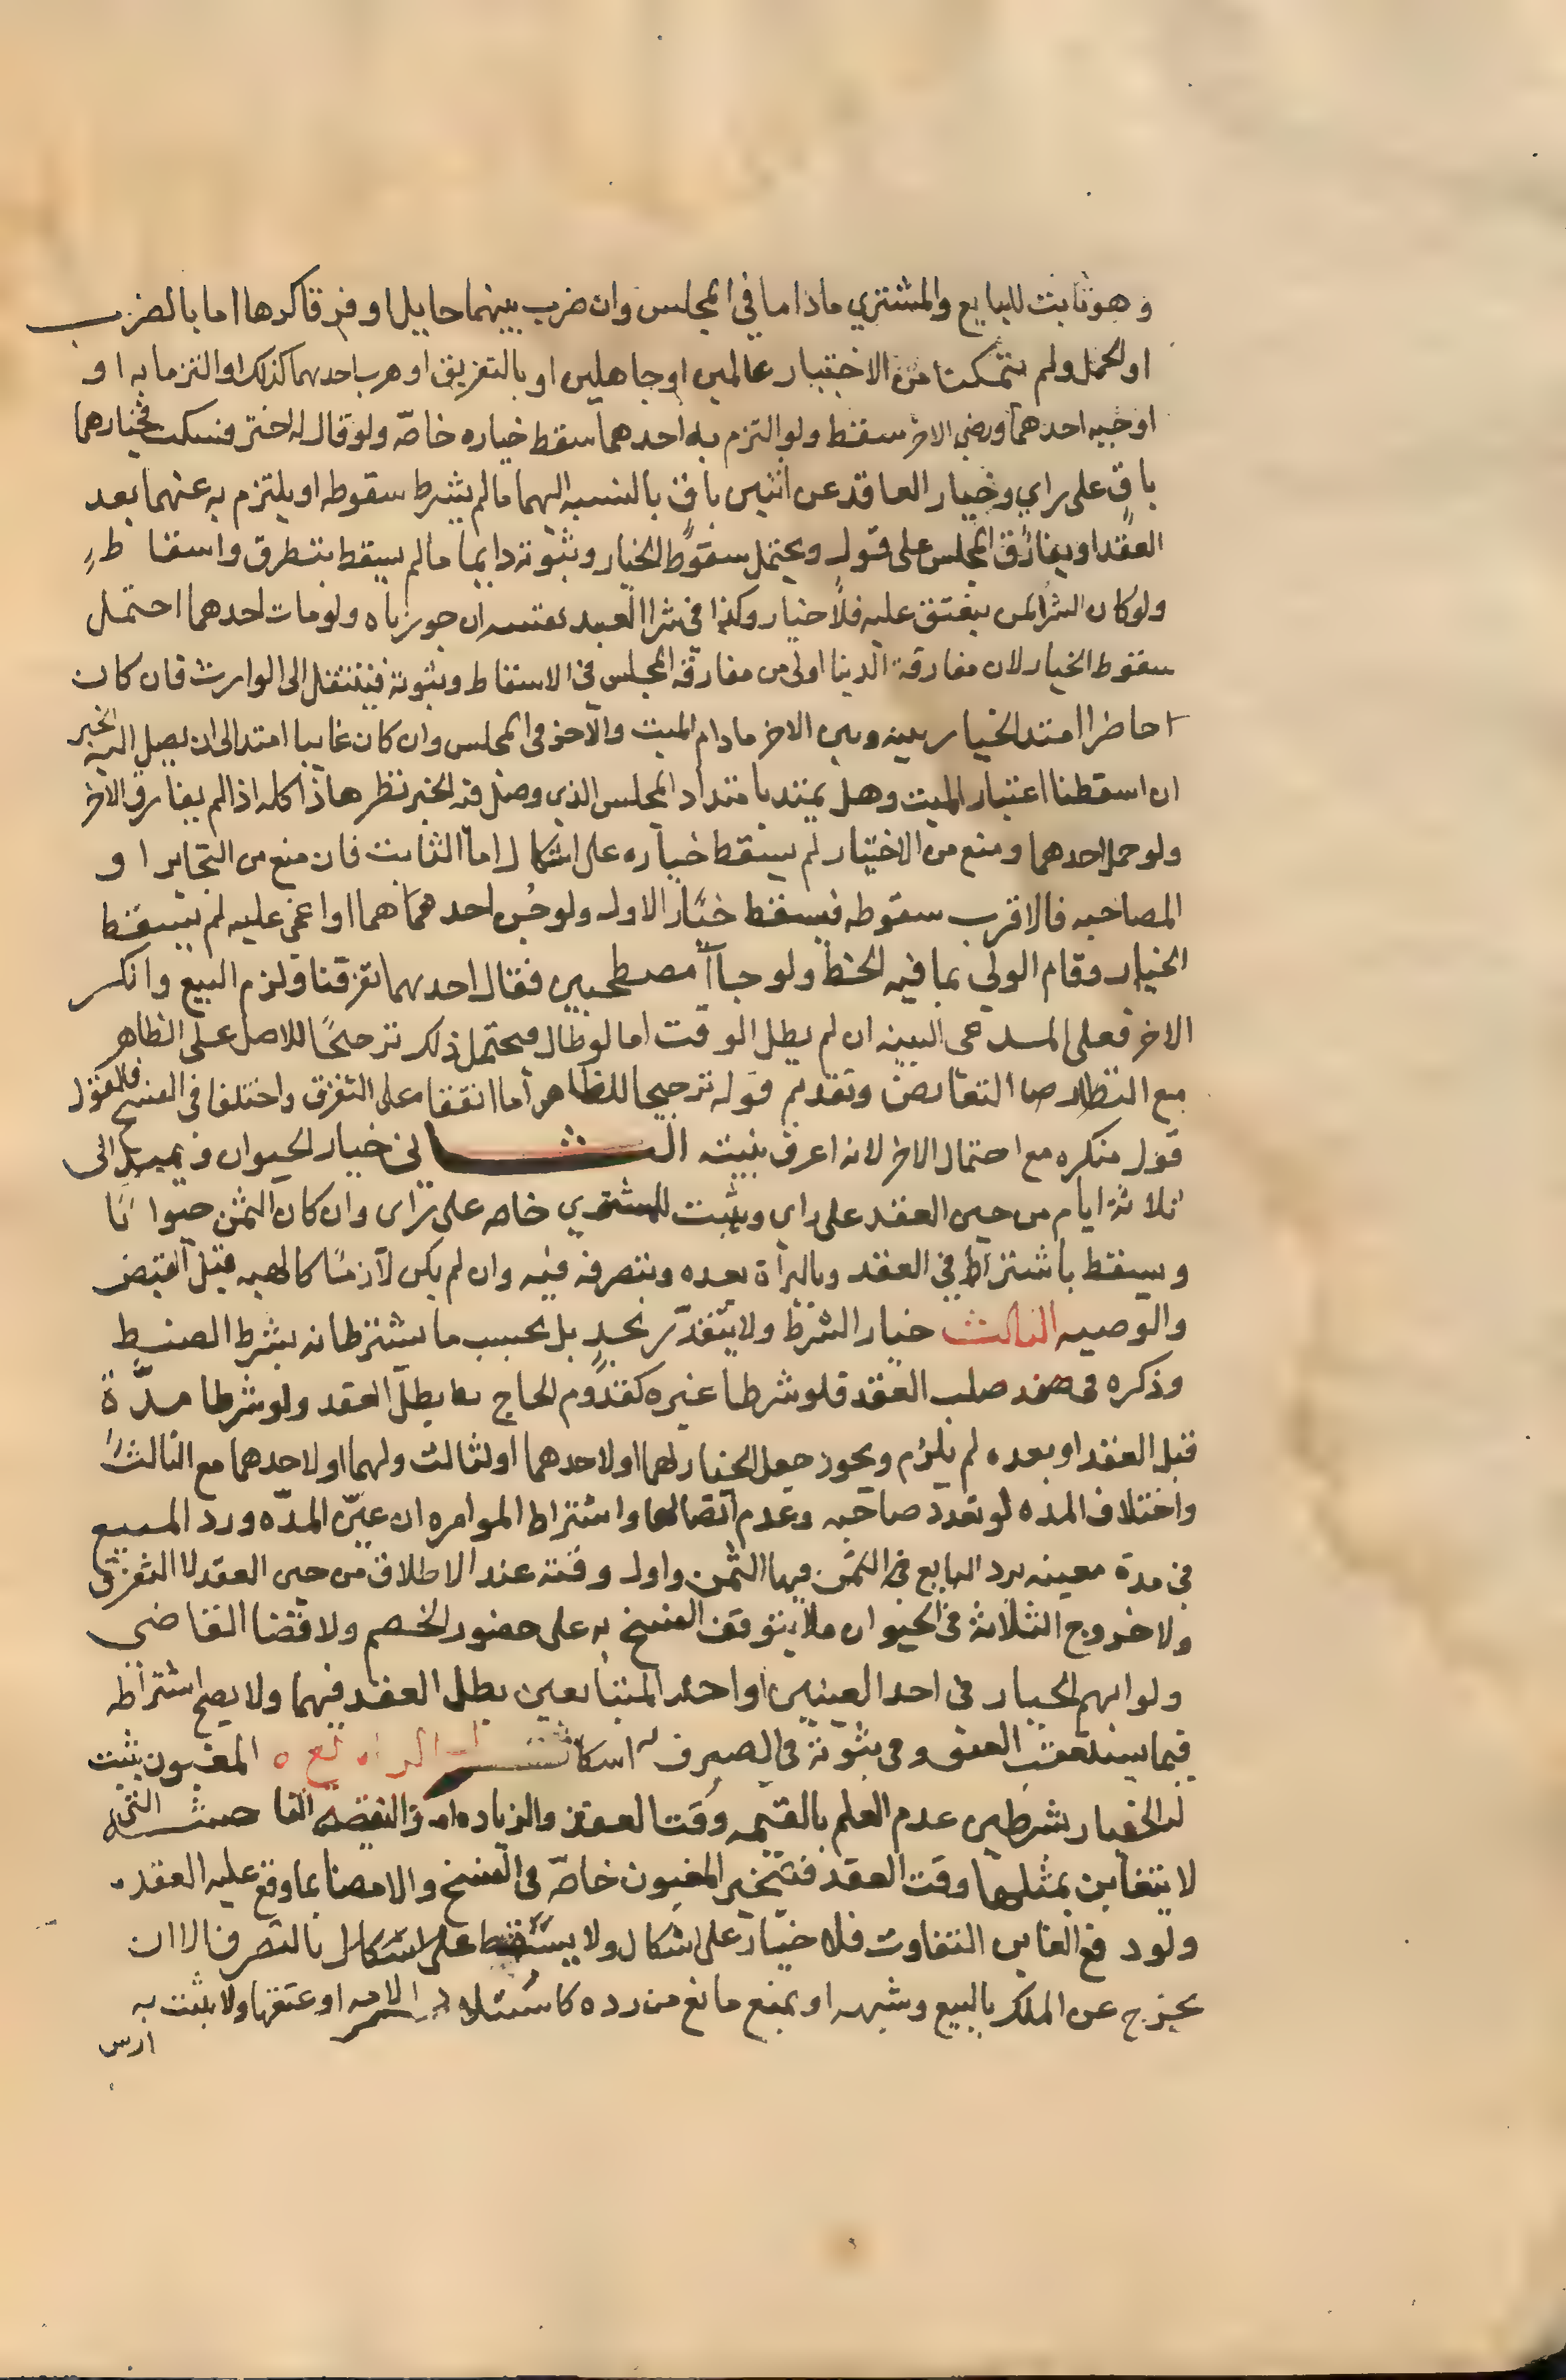 وهو ثابت للبايع والمشتري ماداما في المجلس وان ضرب بينهما حايل او فرقا كرها اما بالضرب
او الحمل ولم يتمكنا من الاختيار عالمين او جاهلين او بالتفريق او هرب احدهما كذلك او التزما به او
اوجبه احدهما ورضي الاخر سقط ولو التزم به احدهما سقط خياره خاصّه ولو قال له اختر فسكت فخيارهما
باقٍ على راي وخيار العاقد عن اثنين باقٍ بالنسبه اليهما مالم يشترط سقوطه او يلتزم به عنهما بعد
العقد او يفارق المجلس على قول ويحتمل سقوط الخيار وثبوته دايما مالم يسقط بتطرق واسقاط
ولو كان الشرا لمن ينعتق عليه فلا خيار وكذا في شرا العبد نفسه ان جوزناه ولو مات احدهما احتمل
سقوط الخيار لان مفارقة الدنيا اولى من مفارقه المجلس في الاسقاط وثبوته فينتقل الى الوارث فان كان
حاضرا امتد الخيار بينه وبين الاخر مادام الميت والاخر في المجلس وان كان غايبا امتد الى ان يصل اليه الخبر
ان اسقطنا اعتبار الميت وهل يمتد بامتداد المجلس الذي وصل فيه الخبر نظر هاذا كله اذا لم يفارق الاخر
ولو حمل احدهما ومنع من الاختيار لم يسقط خياره على اشكال اما الثابت فان منع من التخاير او
المصاحبه فالاقرب سقوطه فيسقط خيار الاول ولو جُن احدهما او اغمي عليه لم يسقط
الخيار وقام الولي بما فيه الحظ ولو جاآ مصطحبين فقال احدهما تفرقنا ولزم البيع وانكر
الاخر فعلى المدعي البينه ان لم يطل الوقت اما لو طال فيحتمل ذلك ترجيحًا للاصل على الظاهر
مع التعارض وتقديم قوله ترجيحا للظاهر اما اتفقا على التفرق واختلفا في الفسخ فالقول
قول منكره مع احتمال الاخر لانه اعرف بنيته الثاني خيار الحيوان ويمتد الى
ثلاثة ايام من حين العقد على راي ويثبت للمشتري خاصه على راى وان كان الثمن حيوانًا
ويسقط باشتراط في العقد وبالبرأة بعده وبتصرفه فيه وان لم يكن لازمًا كالهبه قبل القبض
والوصيه الثالث خيار الشرط ولا يتقدّر بحدٍ بل بحسب ما يشترطانه بشرط الضبط
وذكره في صلب العقد فلو شرطا غيره كقدوم الحاج بطل العقد ولو شرطا مدّة
قبل العقد او بعده لم يلزم ويجوز جعل الخيار لهما او لاحدهما او لثالث ولهما او لاحدهما مع الثالث
واختلاف المده لو تعدد صاحبه وعدم اتصالها واشتراط الموامره ان عيّن المدّه ورد المبيع
في مدة معينه يرد البايع فيها الثمن واول وقته عند الاطلاق من حين العقد لا التفرق
ولا خروج الثلاثة في الحيوان ولا يتوقف الفسخ به على حضور الخصم ولا قضا القاضي
ولو ابهم الخيار في احد العينين او احد المتبايعين بطل العقد فيهما ولا يصح اشتراطه
فيما يستعقب العتق وفي ثبوته في الصرف اشكال الرابع المغبون يثبت
له الخيار بشرطين عدم العلم بالقيمه وقت العقد والزياده او النقيصه الفاحشه التي
لا يتغابن بمثلها وقت العقد فيتخير المغبون خاصّه في الفسخ والامضا بما وقع عليه العقد
ولو دفع الغابن التفاوت فلا خيار على اشكال ولا يسقط بالتصرف الا ان
يخرج عن الملك بالبيع وشبهه او يمنع مانع من رده كاستيلاد الامه او عتقها ولا يثبت به
ارش